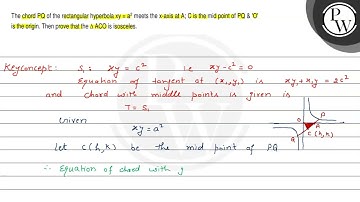 The chord PQ of the rectangular hyperbola xy = a² meets the x-axis at A; C is the mid point of PQ & 'O'
is the origin. Then prove that the Δ ACO is isosceles.
PW
Keyconcept: S₁: xy = c² i.e xy - c² = 0
Equation of tangent at (x₁, y₁) is xy₁ + x₁y = 2c²
and chord with middle points is given is
T = S₁
Given
xy = a²
Let C(h, k) be the mid point of PQ
∴ Equation of chord with
O
P
A
C(h, k)
Q